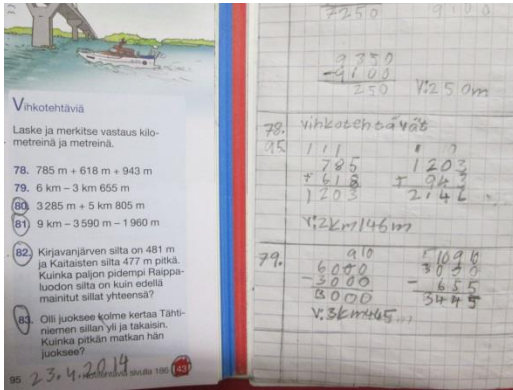 Vihkotehtäviä
Laske ja merkitse vastaus kilo-
metreinä ja metreinä.
78. 785 m + 618 m + 943 m
79. 6 km – 3 km 655 m
80. 3 285 m + 5 km 805 m
81. 9 km – 3 590 m – 1 960 m
82. Kirjavanjärven silta on 481 m
ja Kaitaisten silta 477 m pitkä.
Kuinka paljon pidempi Raippa-
luodon silta on kuin edellä
mainitut sillat yhteensä?
83. Olli juoksee kolme kertaa Tähti-
niemen sillan yli ja takaisin.
Kuinka pitkän matkan hän
juoksee?
95 23.4.2014 sivulla 186 43
7250
9350
-9100
250 V:250m
78. vihkotehtävät
95 1 1 1
785 1203
+ 618 + 943
1203 2146
V:2km146m
79. 9 10
6000
-3000 - 655
3000 3445
V:3km445m